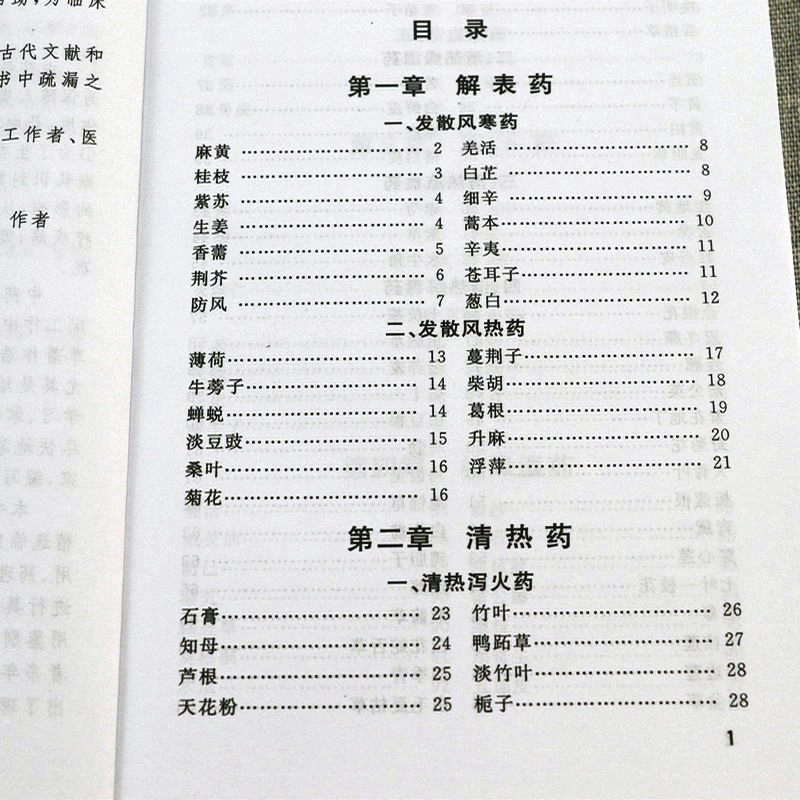 古代文献和
书中疏漏之
工作者、医
作者
目 录
第一章 解表药
一、发散风寒药
麻黄……2 羌活……8
桂枝……3 白芷……8
紫苏……4 细辛……9
生姜……4 蒿本……10
香薷……5 辛夷……11
荆芥……6 苍耳子……11
防风……7 葱白……12
二、发散风热药
薄荷……13 蔓荆子……17
牛蒡子……14 柴胡……18
蝉蜕……14 葛根……19
淡豆豉……15 升麻……20
桑叶……16 浮萍……21
菊花……16
第二章 清热药
一、清热泻火药
石膏……23 竹叶……26
知母……24 鸭跖草……27
芦根……25 淡竹叶……28
天花粉……25 栀子……28
1